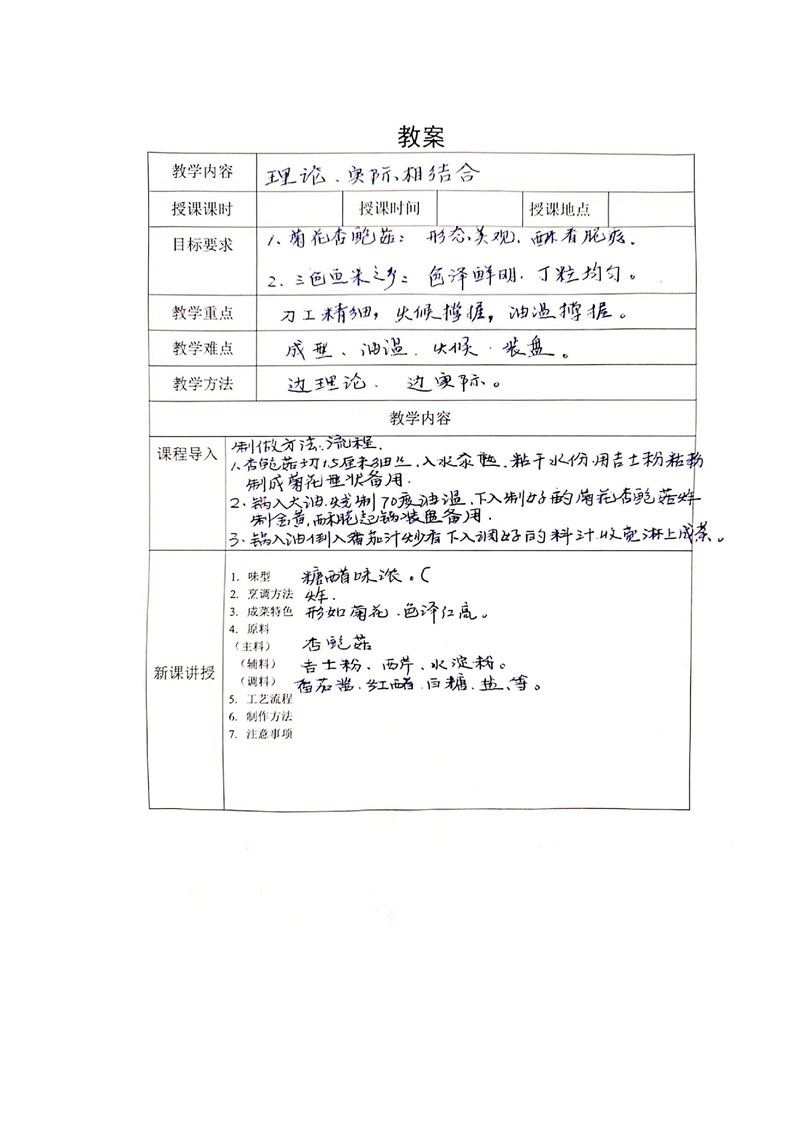 教案
教学内容 理论、实际相结合
授课课时 授课时间 授课地点
目标要求 1、菊花杏鲍菇： 形态美观、酥香脆爽.
2、三色鱼米之乡： 色泽鲜明、丁粒均匀。
教学重点 刀工精细，火候撑握，油温撑握。
教学难点 成型、油温、火候·装盘。
教学方法 边理论、边实际。
教学内容
课程导入 制做方法.流程.
1.杏鲍菇切1.5厘米细丝,入水汆熟.粘干水份.用吉士粉粘粉
制成菊花垂状备用.
2、锅入大油.烧制70度油温、下入制好的菊花杏鲍菇炸
制金黄,酥脆起锅装盘备用.
3、锅入油倒入番茄汁炒香下入调好的料汁.收宽淋上成菜。
新课讲授
1. 味型 糖醋味浓。(
2. 烹调方法 炸.
3. 成菜特色 形如菊花.色泽红亮。
4. 原料
（主料） 杏鲍菇
（辅料） 吉士粉、西芹、水淀粉。
（调料） 番茄酱.红醋.白糖.盐、等。
5. 工艺流程
6. 制作方法
7. 注意事项